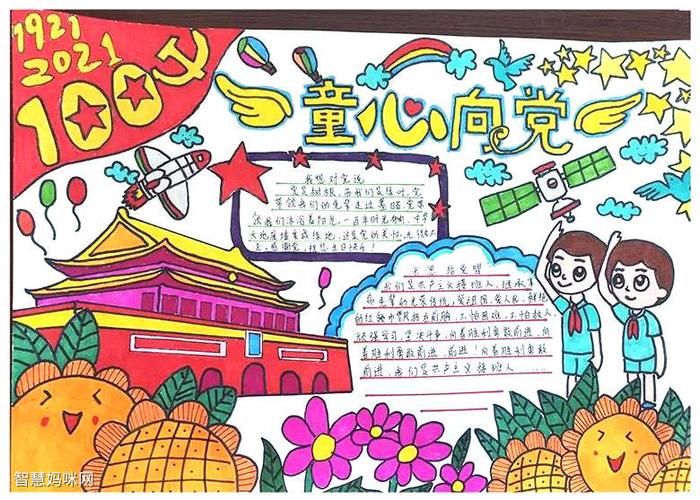 1921
2021
100
童心向党
我想对党说
党是树根，而我们是绿叶，党
带领我们的先辈走过黑暗，党带
领我们沐浴着阳光，一百年时光
大地废墟变成绿地，这是党的关怀
感谢党，祝您生日快乐！
我们是共产主义接班人，继承革
命先辈的光荣传统，爱祖国，爱人民，鲜艳
的红领巾飘扬在前胸，不怕困难，不怕敌人
顽强学习，坚决斗争，向着胜利勇敢前进，向
着胜利勇敢前进，前进！向着胜利勇敢
前进，我们是共产主义接班人……
智慧妈咪网